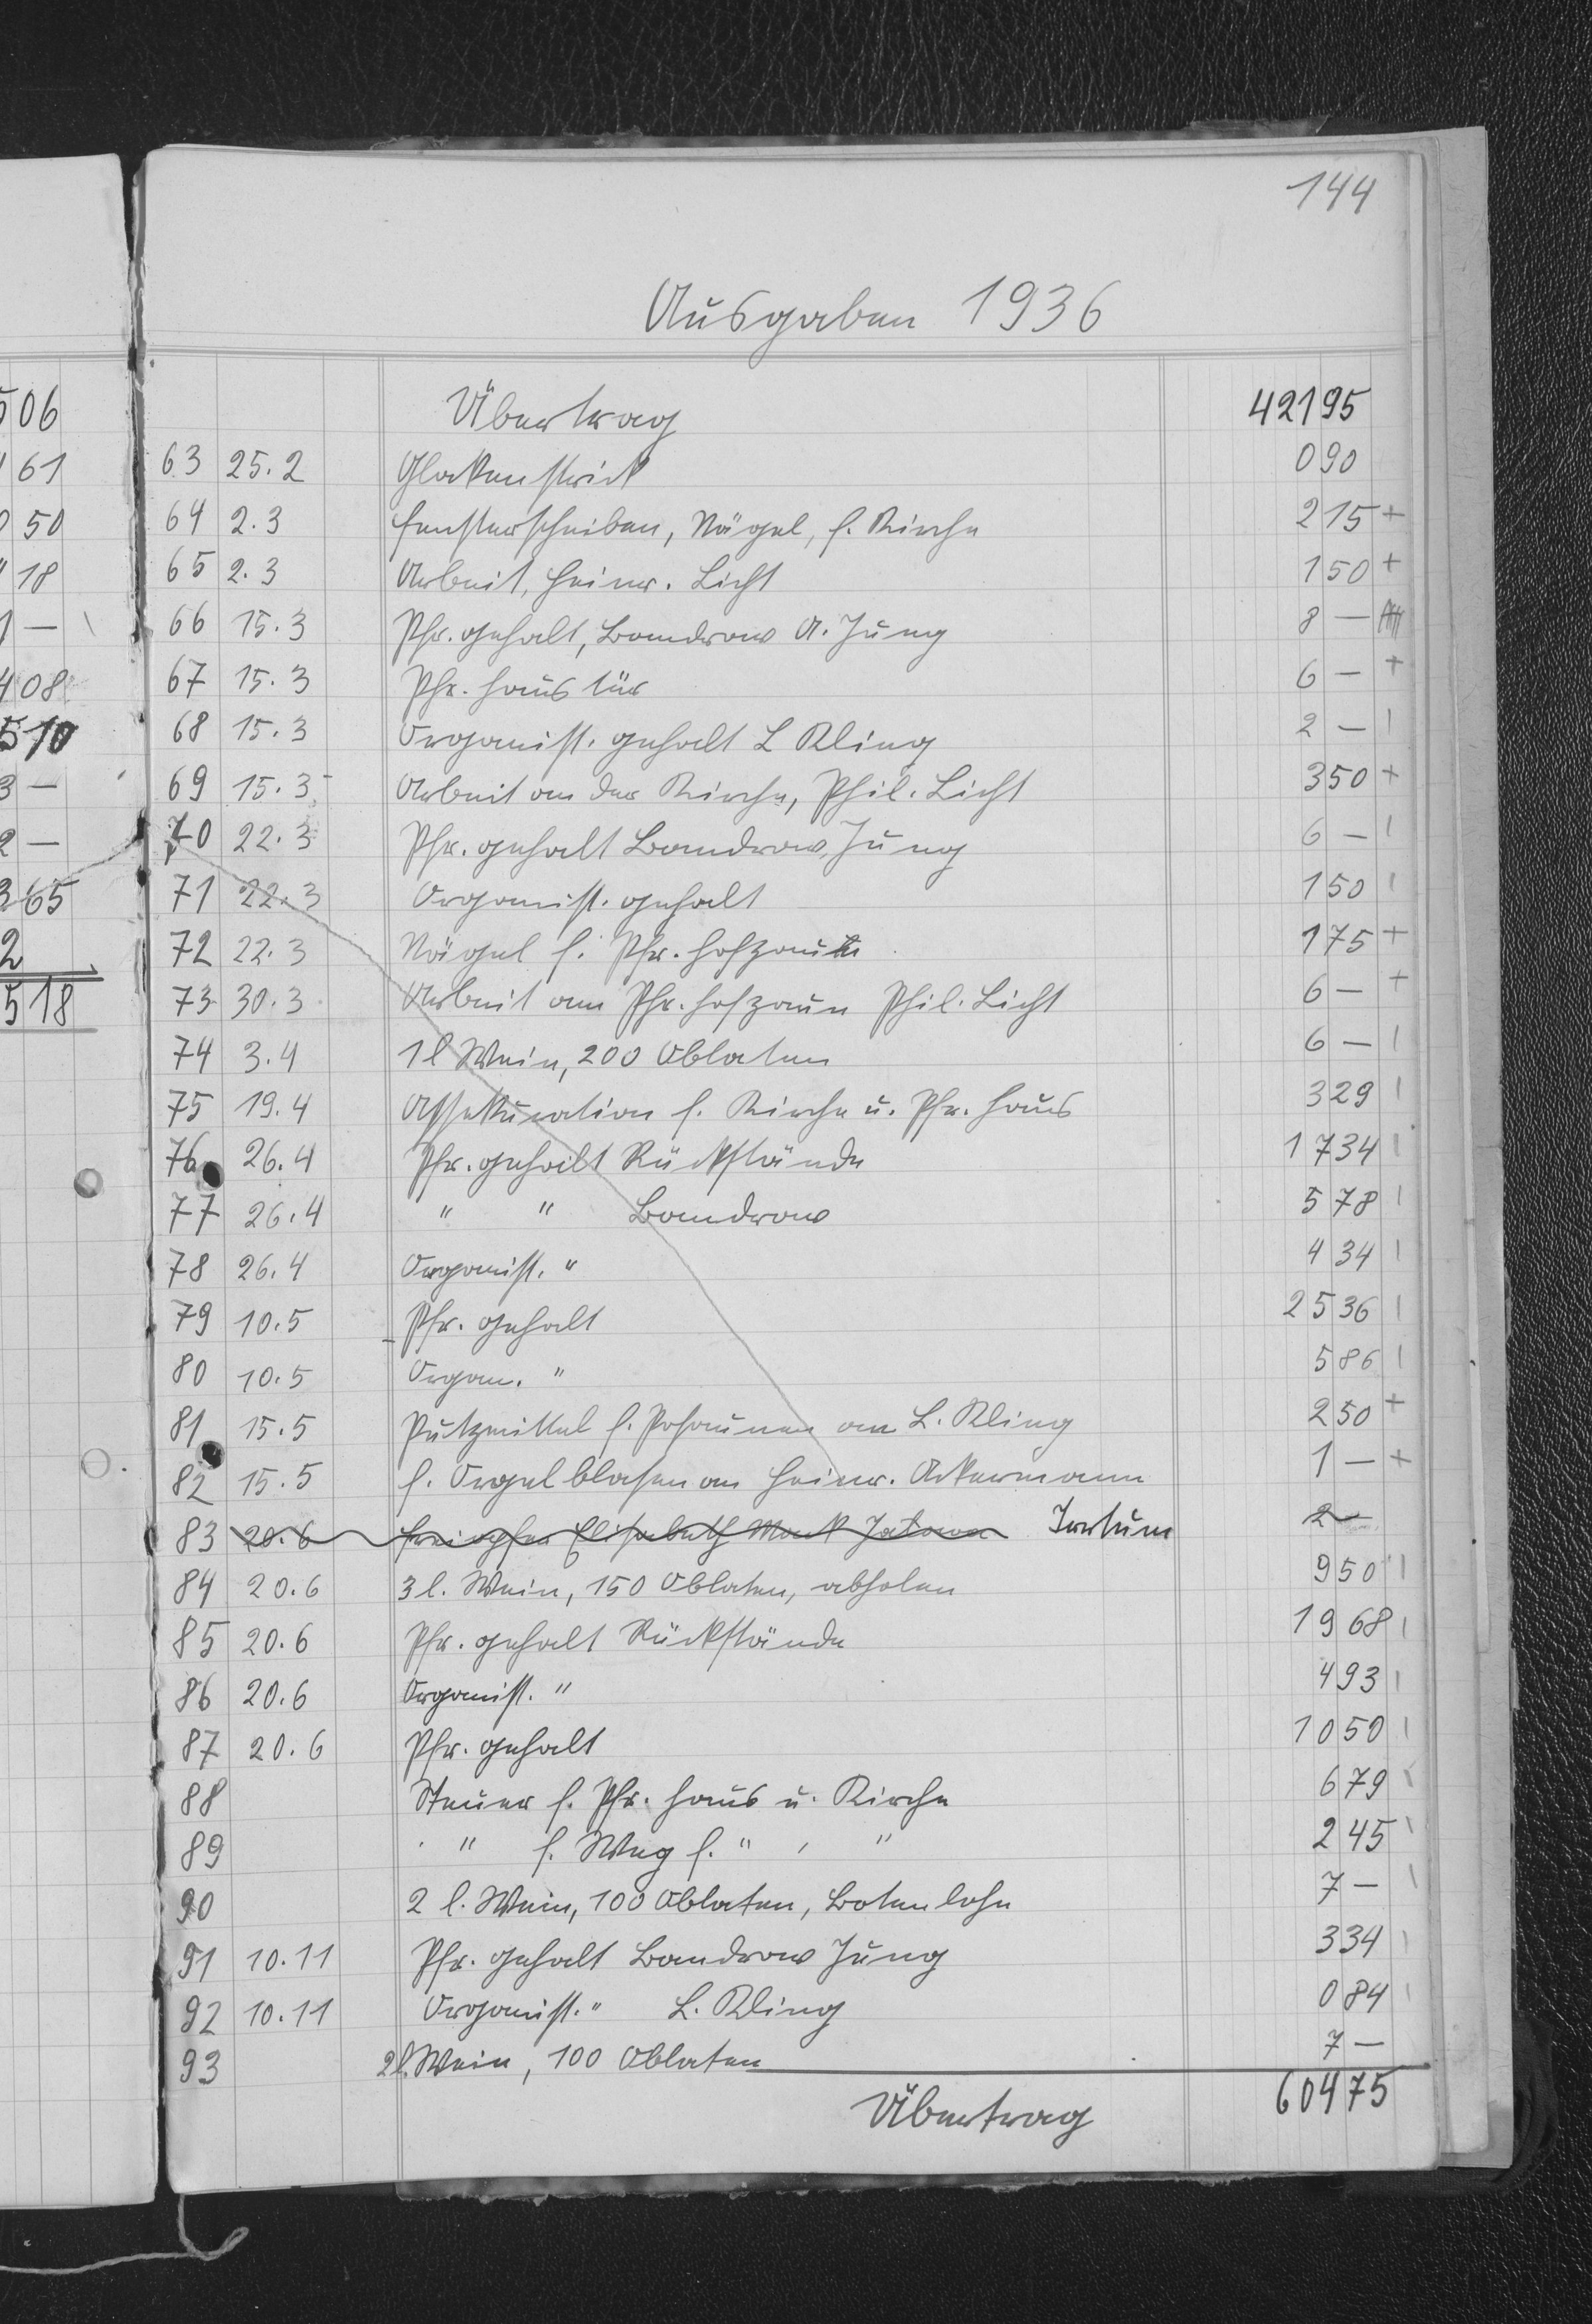 144
Ausgaben 1936
Übertrag 42195
63 25.2 Glockenstrick 090
64 2.3 Fensterscheiben, Nägel, f. Kirche 215 +
65 2.3 Arbeit, Heinr. Licht 150 +
66 15.3 Pfr. gehalt, Bandrow A. Jung 8 —
67 15.3 Pfr. haus tür 6 — +
68 15.3 Organist. gehalt L Kling 2 — |
69 15.3 Arbeit an der Kirche, Phil. Licht 350 +
70 22.3 Pfr. gehalt Bandrow, Jung 6 — |
71 22.3 Organist. gehalt 150 |
72 22.3 Nägel f. Pfr. hofzaun 175 +
73 30.3 Arbeit am Pfr. hofzaun Phil. Licht 6 — +
74 3.4 1 l Wein, 200 Oblaten 6 — |
75 19.4 Assekuration f. Kirche u. Pfr. haus 329 |
76 26.4 Pfr. gehalt Rückstände 1734 |
77 26.4 " " Bandrow 578 |
78 26.4 Organist. " 434 |
79 10.5 Pfr. gehalt 2536 |
80 10.5 Organ. " 586 |
81 15.5 Putzmittel f. Posaunen an L. Kling 250 +
82 15.5 f. Orgelblasen an Heinr. Ackermann 1 — +
83 20.6 Elisabeth Irrtum 2 —
84 20.6 3 l. Wein, 150 Oblaten, abholen 950 |
85 20.6 Pfr. gehalt Rückstände 1968 |
86 20.6 Organist. " 493 |
87 20.6 Pfr. gehalt 1050 |
88 Steuer f. Pfr. haus u. Kirche 679 |
89 " f. Weg f. " , " 245 |
90 2 l. Wein, 100 Oblaten, Botenlohn 7 — |
91 10.11 Pfr. gehalt Bandrow Jung 334 |
92 10.11 Organist. " L. Kling 084 |
93 2 l. Wein, 100 Oblaten 7 —
Übertrag 60475
06
61
50
18
1 —
408
510
3 —
2 —
365
2
518